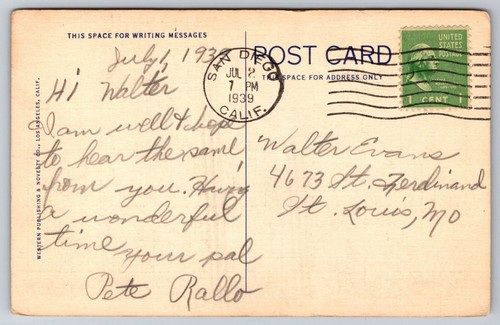 THIS SPACE FOR WRITING MESSAGES
POST CARD
THIS SPACE FOR ADDRESS ONLY
WESTERN PUBLISHING & NOVELTY CO., LOS ANGELES, CALIF.
SAN DIEGO
JUL 2
7 PM
1939
CALIF.
UNITED
STATES
POSTAGE
1 CENT 1
July 1, 1939
Hi Walter
I am well & hope
to hear the same
from you. Having
a wonderful
time
Your pal
Pete Rallo
Walter Evans
4673 St. Ferdinand
St. Louis, Mo